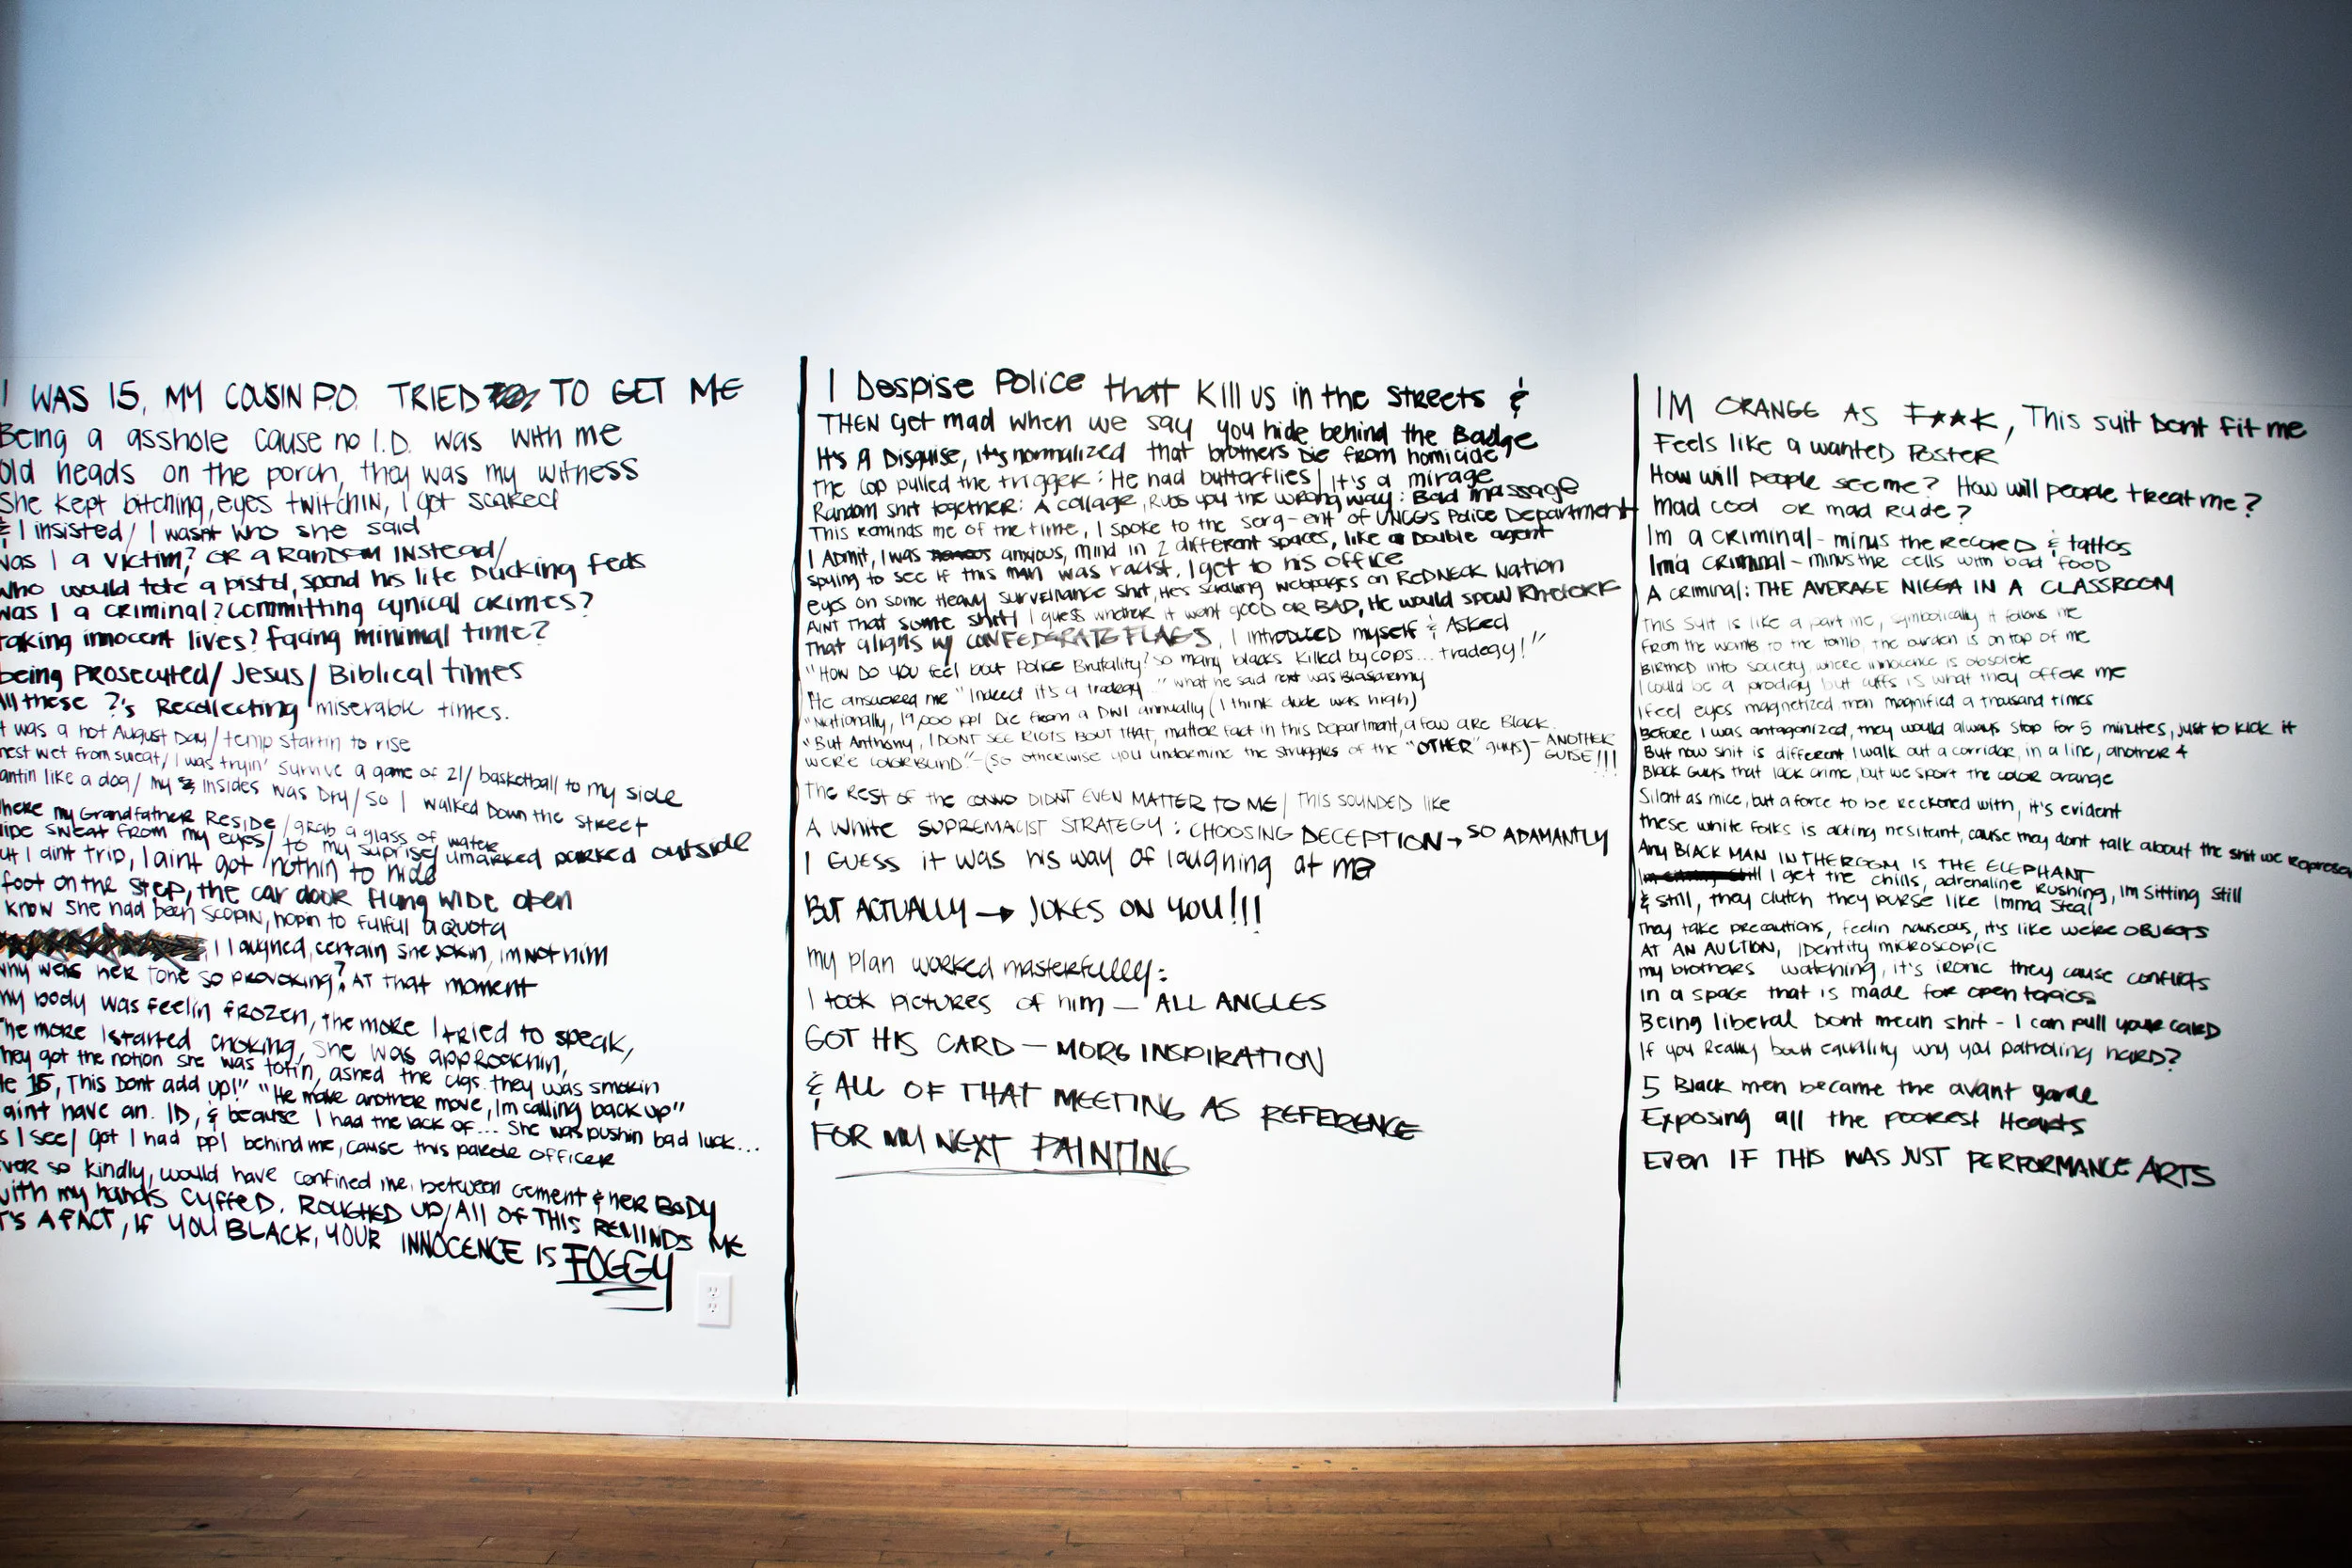 I WAS 15, MY COUSIN P.O. TRIED TO GET ME
Being a asshole cause no I.D. was with me
old heads on the porch, they was my witness
She kept bitching, eyes twitchin, I got scared
& I insisted/ I wasnt who she said
was I a victim? OR a RANDOM INSTEAD/
who would tote a pistol, spend his life Ducking feds
was I a criminal? committing cynical crimes?
taking innocent lives? facing minimal time?
being PROSECUTED/ Jesus/ Biblical times
All these ?'s Recollecting miserable times.
t was a hot August Day/ temp startin to rise
hest wet from sweat/ I was tryin' survive a game of 21/ basketball to my side
antin like a dog/ my insides was Dry/ so I walked Down the street
here my Grandfather Reside/ grab a glass of water
ipe sweat from my eyes/ to my suprise/ umarked parked outside
ut I dint trip, I aint got nothin to hide
foot on the step, the car door flung wide open
know she had been scopin, hopin to fulfull a quota
I laughed, certain she jokin, im not him
why was her tone so provoking? AT that moment
my body was feelin frozen, the more I tried to speak,
the more I started choking, she was approachin,
they got the notion she was totin, ashed the cigs they was smokin
He 15, This Dont add up!" "He make another move, Im calling back up"
aint have an. ID, & because I had the lack of... She was pushin bad luck...
s I see/ got I had ppl behind me, cause this parole officer
ver so kindly, would have confined me between cement & her BODY
with my hands cuffed. ROUGHED UP/ All OF THIS REMINDS ME
T'S A FACT, IF YOU BLACK, YOUR INNOCENCE IS FOGGY
I Despise Police that Kill us in the Streets &
THEN Get mad when we say you hide behind the Badge
It's A Disguise, it's normalized that brothers Die from homicide
The cop pulled the trigger: He had butterflies/ It's a mirage
Random shit together: A collage, Rubs you the wrong way: Bad massage
This reminds me of the time, I spoke to the serg-ent of UNCG's Police Department
I Admit, I was anxious, mind in 2 different spaces, like a Double agent
spying to see if this man was racist. I get to his office
eyes on some Heavy surveillance shit, He's scrolling webpages on REDNECK Nation
AINT That some shit! I guess whether it went good OR BAD, He would spew Rhetorik
that aligns w/ CONFEDERATE FLAGS. I introduced myself & Asked
"How Do you feel bout Police Brutality? So many blacks killed by cops... tradegy!"
He answered me "Indeed it's a tradegy..." what he said next was Blasphemy
"Nationally, 19,000 ppl Die from a DWI annually (I think dude was high)
"But Anthony, I DONT SEE RIOTS BOUT THAT, matter fact in this Department, a few are Black.
WE'RE COLORBLIND."-(So otherwise you undermine the struggles of the "OTHER" guys)- ANOTHER GUISE!!!
THE REST OF THE CONVO DIDNT EVEN MATTER TO ME/ THIS SOUNDED like
A White SUPREMACIST STRATEGY: CHOOSING DECEPTION → SO ADAMANTLY
I GUESS it was his way of laughing at me
BUT ACTUALLY → JOKES ON YOU!!!
my plan worked masterfully:
I took pictures of him — ALL ANGLES
GOT HIS CARD — MORE INSPIRATION
& ALL OF THAT MEETING AS REFERENCE
FOR MY NEXT PAINTING
IM ORANGE AS F**K, This suit Dont fit me
Feels like a wanted Poster
How will people see me? How will people treat me?
Mad cool or mad Rude?
Im a criminal - minus the RECORD & tattos
Im a CRIMINAL - minus the cells with bad food
A criminal: THE AVERAGE NIGGA IN A CLASSROOM
This suit is like a part me, symbolically it follows me
From the womb to the tomb, the burden is on top of me
Birthed into society, where innocence is obsolete
I could be a prodigy but cuffs is what they offer me
I feel eyes magnetized, then magnified a thousand times
Before I was antagonized, they would always stop for 5 minutes, just to kick it
But now shit is different I walk out a corridor, in a line, another 4
Black Guys that lack crime, but we sport the color orange
Silent as mice, but a force to be reckoned with, it's evident
these white folks is acting hesitant, cause they dont talk about the shit we represe
Any BLACK MAN IN THE ROOM IS THE ELEPHANT
I get the chills, adrenaline rushing, Im sitting still
& still, they clutch they purse like Imma steal
They take precautions, feelin nauseous, it's like we're OBJECTS
AT AN AUCTION, Identity microscopic
my brothers watching, it's ironic they cause conflicts
In a space that is made for open topics
Being liberal Dont mean shit - I can pull your card
If you Really bout equality why you patroling hard?
5 Black men became the avant garde
Exposing all the poorest Hearts
Even IF THIS WAS JUST PERFORMANCE ARTS